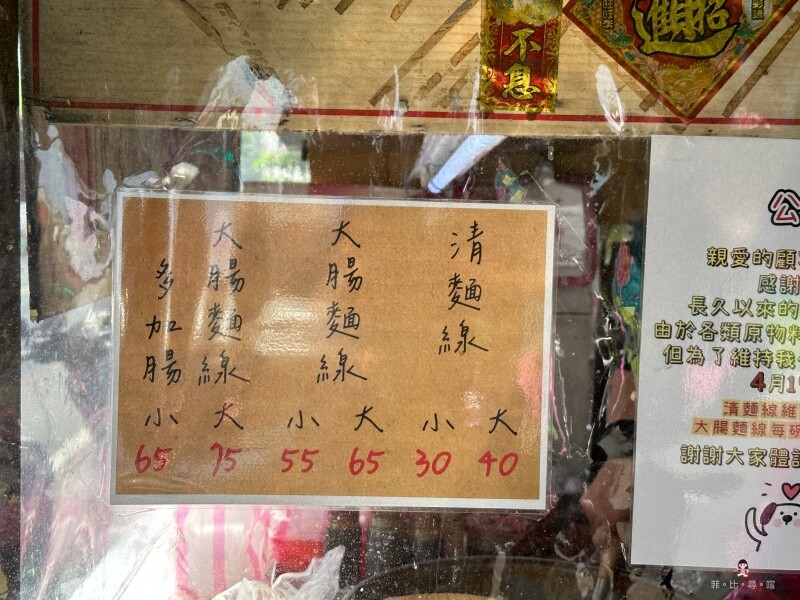 不息
招財進
清麵線
大腸麵線
大腸麵線
多加腸
小 大 小 大 小 大
65 75 55 65 30 40
公
親愛的顧
感謝
長久以來的
由於各類原物料
但為了維持我
4月1
清麵線維
大腸麵線每碗
謝謝大家體
菲。比。尋。嚐